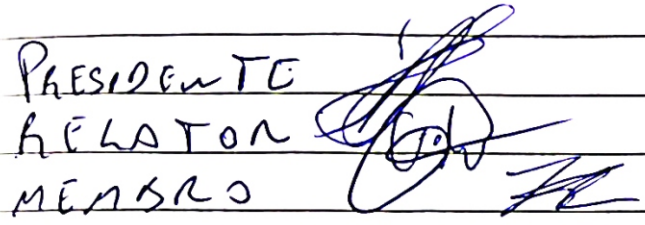 PRESIDENTE
RELATOR
MEMBRO